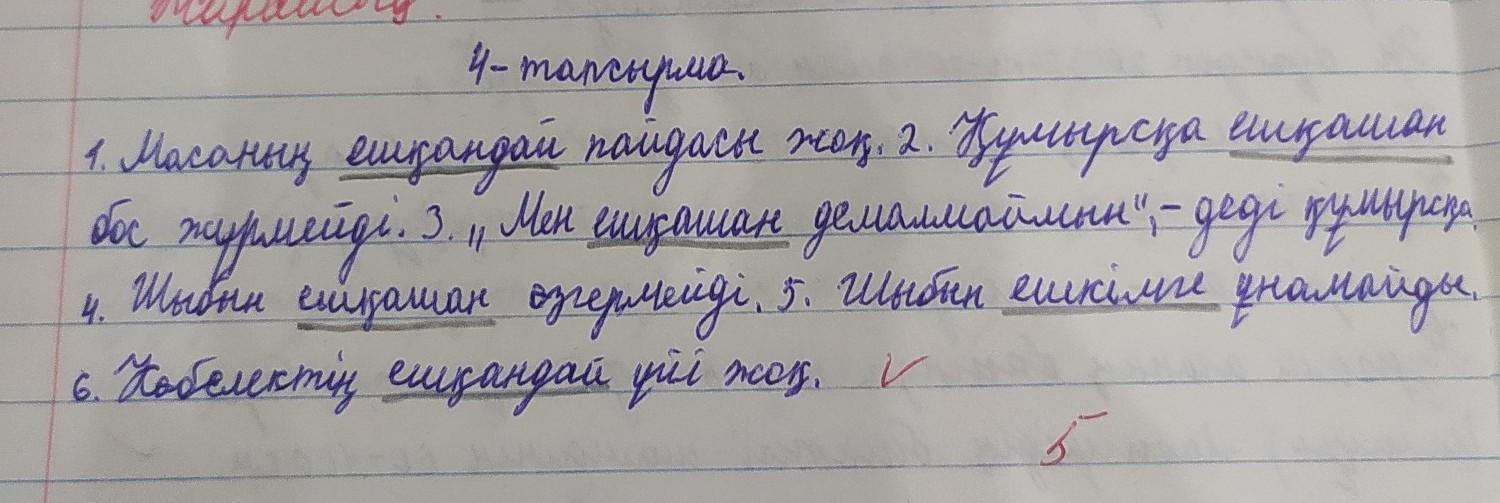 Жарайсың.
4-тапсырма.
1. Масаның ешқандай пайдасы жоқ. 2. Құмырсқа ешқашан
бос жүрмейді. 3. „Мен ешқашан демалмаймын", – деді құмырсқа.
4. Шыбын ешқашан өзгермейді. 5. Шыбын ешкімге ұнамайды.
6. Көбелектің ешқандай үйі жоқ. ✓
5